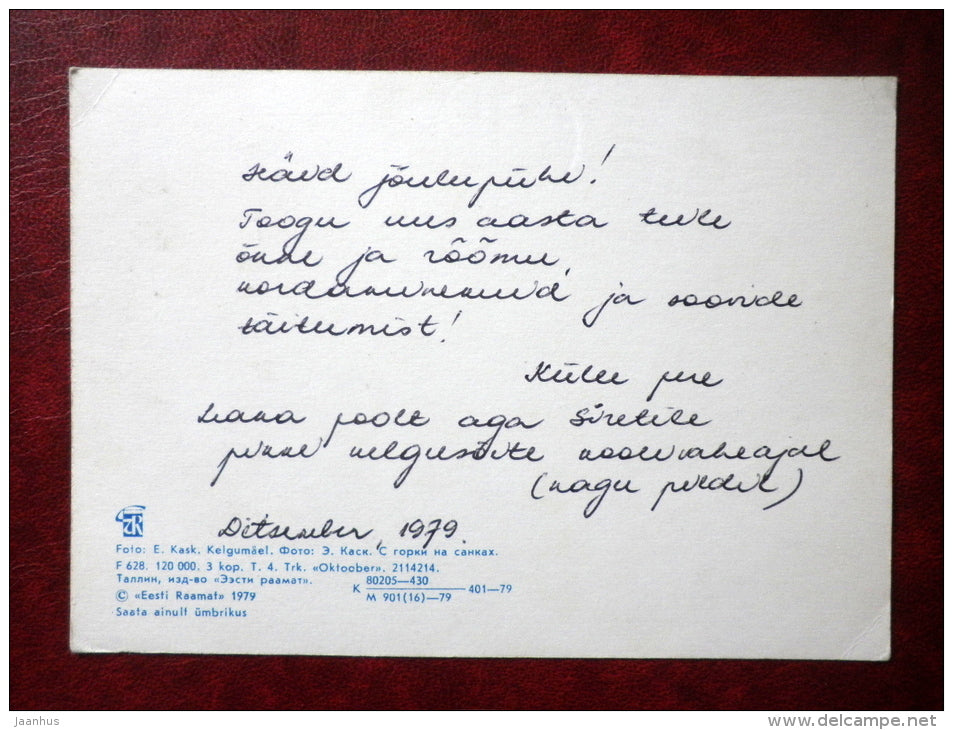 Häid jõulupühi!
Toogu uus aasta teile
õnne ja rõõmu,
kordaminekuid ja soovide
täitumist!
Külli pere
Liana poolt aga Siretile
pikki kelgusõite koolivaheajal
(nagu pildil)
Detsember, 1979.
Foto: E. Kask. Kelgumäel. Фото: Э. Каск. С горки на санках.
F 628. 120 000. 3 kop. T. 4. Trk. «Oktoober». 2114214.
Таллин, изд-во «Ээсти раамат».
К 80205—430 / М 901(16)—79 401—79
© «Eesti Raamat» 1979
Saata ainult ümbrikus
jaanhus
www.delcampe.net